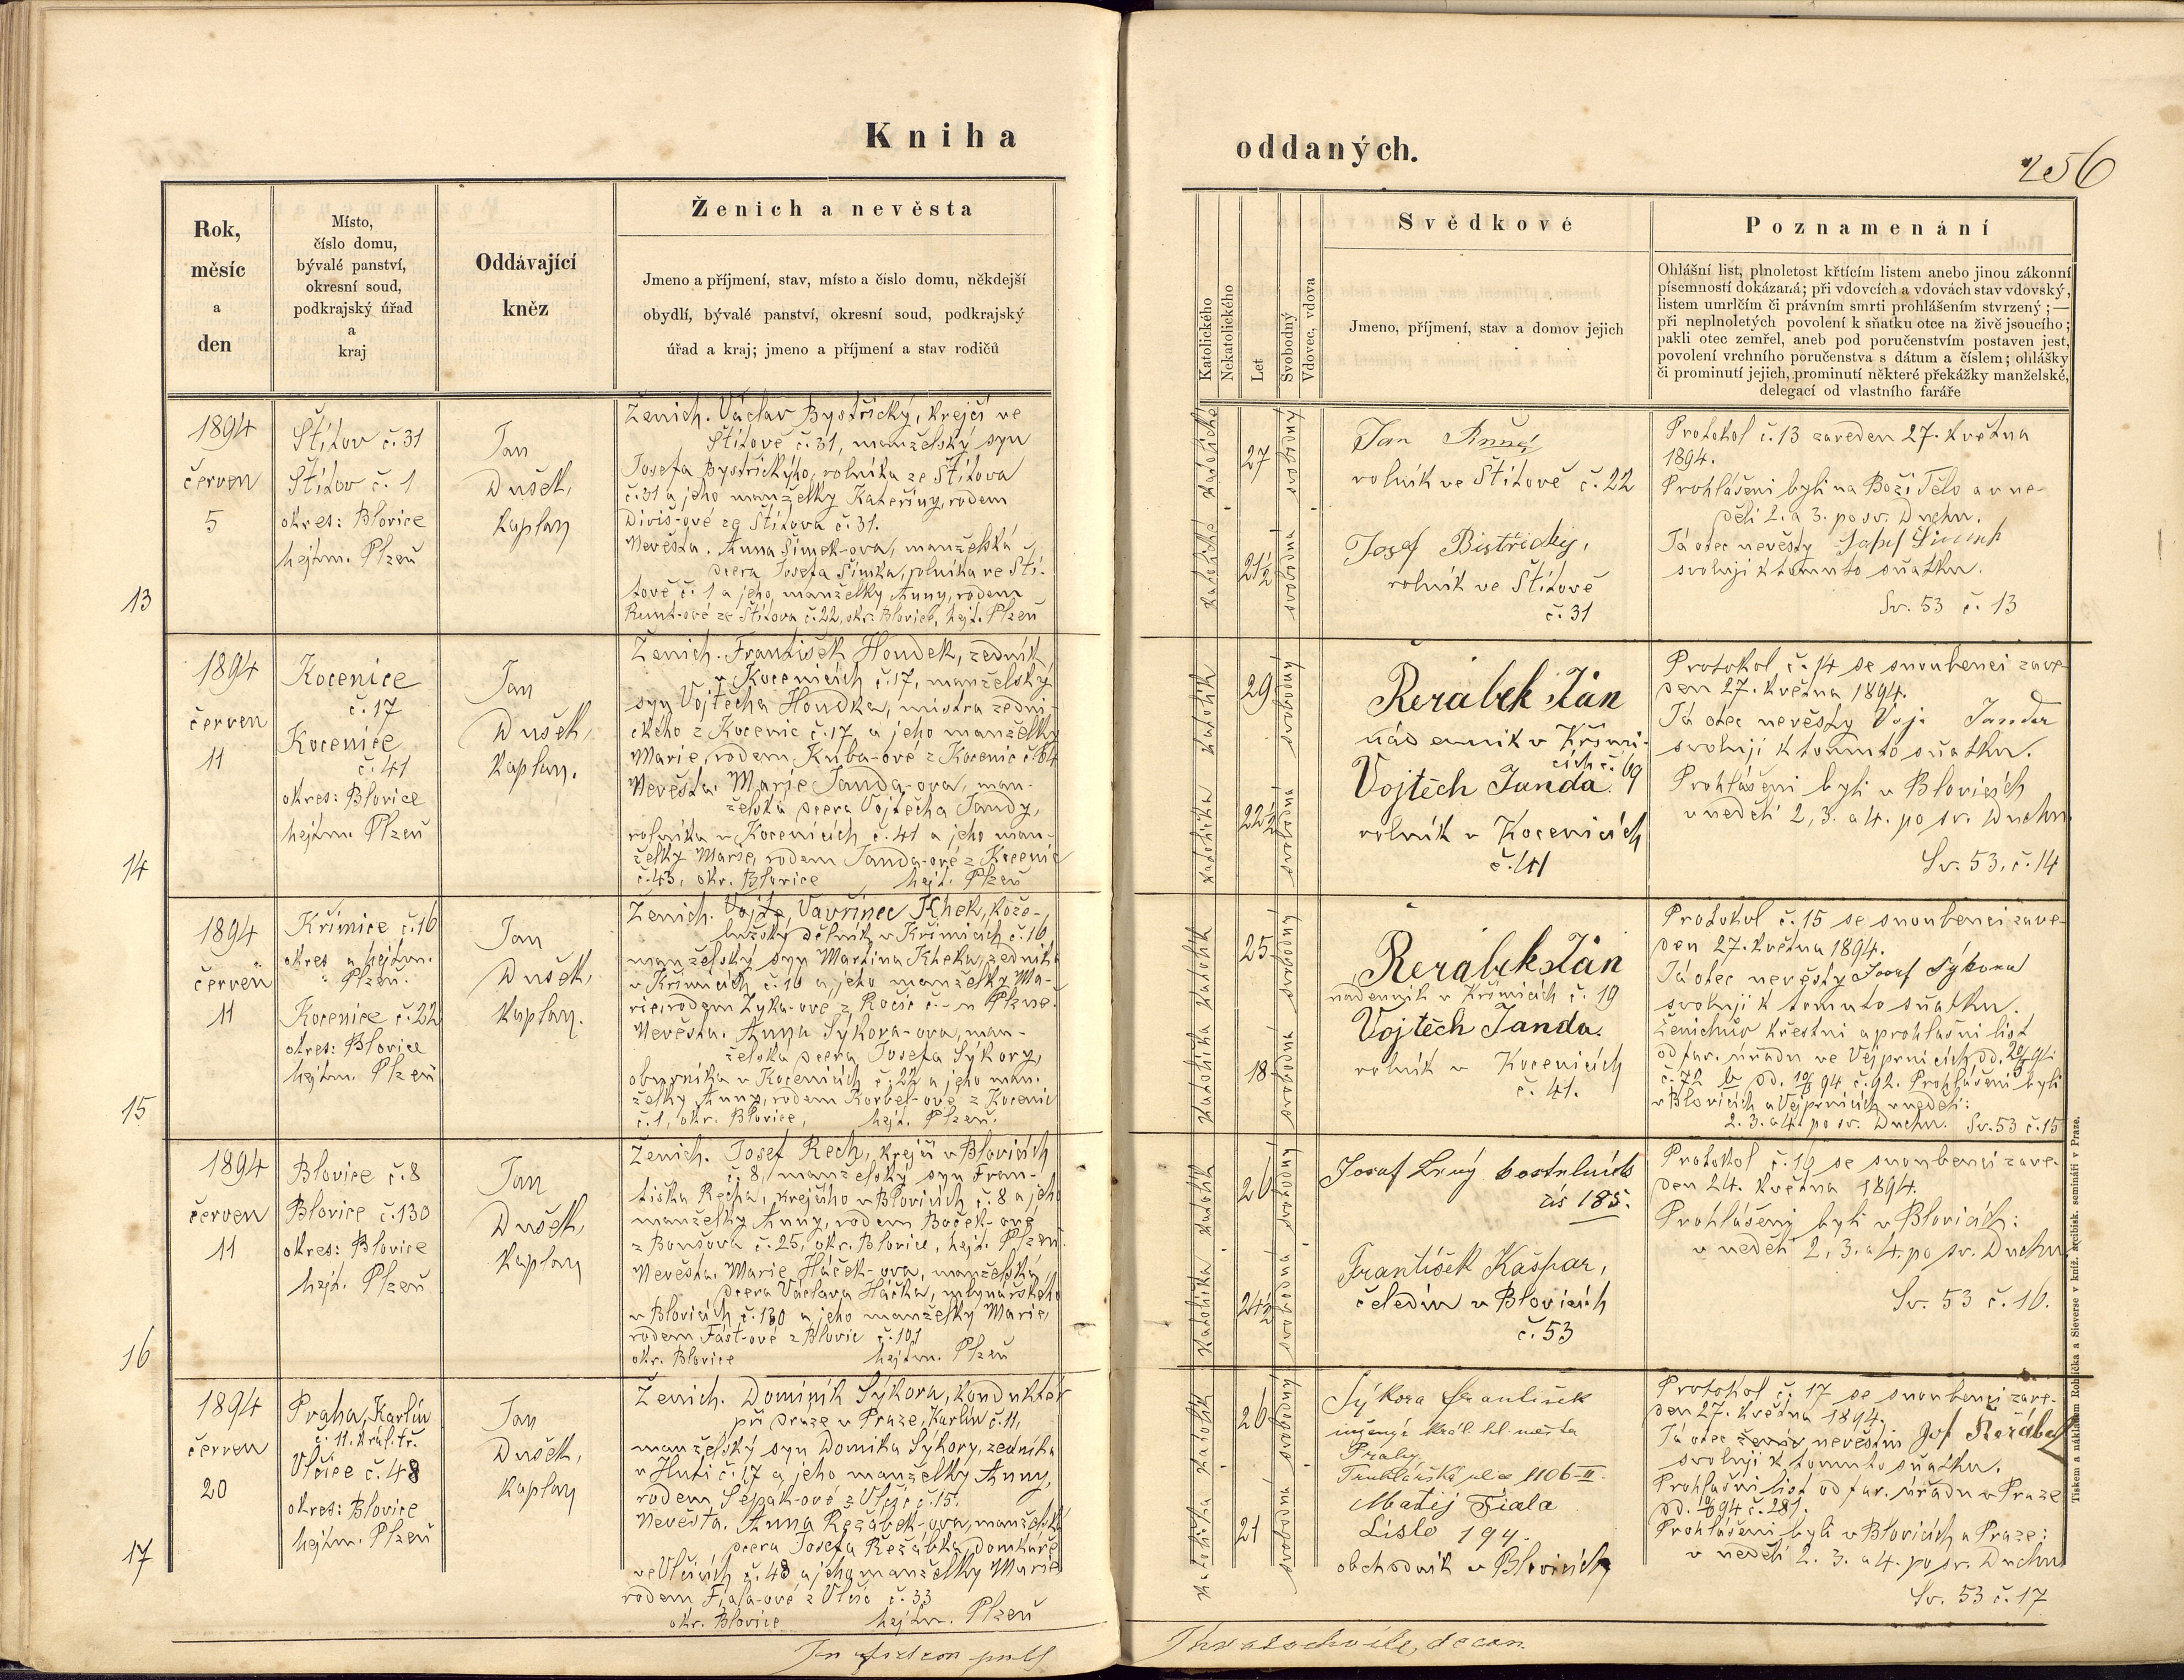 Kniha
oddaných.
256
Rok,
měsíc
a
den
Místo,
číslo domu,
bývalé panství,
okresní soud,
podkrajský úřad
a
kraj
Oddávající
kněz
Ženich a nevěsta
Jmeno a příjmení, stav, místo a číslo domu, někdejší
obydlí, bývalé panství, okresní soud, podkrajský
úřad a kraj; jmeno a příjmení a stav rodičů
Katolického
Nekatolického
Let
Svobodný
Vdovec, vdova
Svědkové
Jmeno, příjmení, stav a domov jejich
Poznamenání
Ohlášní list, plnoletost křtícím listem anebo jinou zákonní
písemností dokázaná; při vdovcích a vdovách stav vdovský,
listem umrlčím či právním smrti prohlášením stvrzený; —
při neplnoletých povolení k sňatku otce na živě jsoucího;
pakli otec zemřel, aneb pod poručenstvím postaven jest,
povolení vrchního poručenstva s dátum a číslem; ohlášky
či prominutí jejich, prominutí některé překážky manželské,
delegací od vlastního faráře
13
1894
červen
5
Štítov č. 31
Štítov č. 1
okres: Blovice
hejtm. Plzeň
Jan
Dušek,
kaplan
Ženich. Václav Bystřický, krejčí ve
Štítově č. 31, manželský syn
Josefa Bystřického, rolníka ze Štítova
č. 31 a jeho manželky Kateřiny, rodem
Diviš-ové ze Štítova č. 31.
Nevěsta. Anna Šimek-ova, manželská
dcera Josefa Šimka, rolníka ve Ští-
tově č. 1 a jeho manželky Anny, rodem
ze Štítova č. 22, okr. Blovice, hejt. Plzeň
katolík
katolička
27
21½
svobodný
svobodna
Jan
rolník ve Štítově č. 22
Josef Bistřický,
rolník ve Štítově
č. 31
Protokol č. 13 zaveden 27. května
1894.
Prohlášeni byli na Boží Tělo a v ne-
děli 2. a 3. po sv. Duchu.
Já otec nevěsty Josef Šimek
svoluji k tomuto sňatku.
Sv. 53 č. 13
14
1894
červen
11
Kocenice
č. 17
Kocenice
č. 41
okres: Blovice
hejtm. Plzeň
Jan
Dušek,
kaplan.
Ženich. František Houdek, zedník
v Kocenicích č. 17, manželský
syn Vojtěcha Houdka, mistra zedni-
ckého z Kocenic č. 17 a jeho manželky
Marie, rodem Kuba-ové z Kocenic č. 64
Nevěsta. Marie Janda-ova, man-
želská dcera Vojtěcha Jandy,
rolníka v Kocenicích č. 41 a jeho man-
želky Marie, rodem Janda-ové z Kocenic
č. 43, okr. Blovice hejt. Plzeň
katolík
katolička
29
22½
svobodný
svobodna
Rerábek Ján
nádenník v Křimi-
cích č. 19
Vojtěch Janda.
rolník v Kocenicích
č. 41
Protokol č. 14 se snoubenci zave-
den 27. května 1894.
Já otec nevěsty Voj. Janda
svoluji k tomuto sňatku.
Prohlášeni byli v Blovicích
v neděli 2, 3. a 4. po sv. Duchu.
Sv. 53, č. 14
15
1894
červen
11
Křimice č. 16
okres a hejtm.
Plzeň.
Kocenice č. 22
okres: Blovice
hejtm. Plzeň
Jan
Dušek,
kaplan.
Ženich. Vojtě, Vavřinec Khek, kože-
lužský dělník v Křimicích č. 16,
manželský syn Martina Kheka, zedníka
v Křimicích č. 16 a jeho manželky Ma-
rie, rodem Zyka-ové z Kočic č. – u Plzně.
Nevěsta. Anna Sýkora-ova, man-
želská dcera Josefa Sýkory,
obuvníka v Kocenicích č. 22 a jeho man-
želky Anny, rodem Korbel-ové z Kocenic
č. 1, okr. Blovice, hejt. Plzeň.
katolík
katolička
25
18
svobodný
svobodna
Rerábek Ján
nádenník v Křimicích č. 19
Vojtěch Janda.
rolník v Kocenicích
č. 41.
Protokol č. 15 se snoubenci zave-
den 27. května 1894.
Já otec nevěsty Josef Sýkora
svoluji k tomuto sňatku.
Ženichův křestní a prohlašní list
od far. úřadu ve Vejprnicích dd.
č. 72 č. 92. Prohlášeni byli
v Blovicích a Vejprnicích v neděli:
2. 3. a 4. po sv. Duchu. Sv. 53 č. 15
16
1894
červen
11
Blovice č. 8
Blovice č. 130
okres: Blovice
hejt. Plzeň
Jan
Dušek,
kaplan
Ženich. Josef Rech, krejčí v Blovicích
č. 8, manželský syn Fran-
tiška Recha, krejčího v Blovicích č. 8 a jeho
manželky Anny, rodem Boček-ové
z Boušova č. 25, okr. Blovice, hejt. Plzeň.
Nevěsta. Marie Háček-ova, manželská
dcera Václava Háčka, mlynářského
v Blovicích č. 130 a jeho manželky Marie,
rodem Fást-ové z Blovic č. 101
okr. Blovice hejtm. Plzeň
katolík
katolička
26
24½
svobodný
svobodna
Josef kostelník
čís 185.
František Kašpar,
čeledín v Blovicích
č. 53
Protokol č. 16 se snoubenci zave-
den 24. května 1894.
Prohlášeni byli v Blovicích:
v neděli 2, 3. a 4. po sv. Duchu
Sv. 53 č. 16.
17
1894
červen
20
Praha, Karlín
č. 11. král. tř.
Vlčice č. 48
okres: Blovice
hejtm. Plzeň
Jan
Dušek,
kaplan
Ženich. Dominik Sýkora, konduktér
při dráze v Praze, Karlín č. 11,
manželský syn Domika Sýkory, zedníka
v Huti č. 17 a jeho manželky Anny,
rodem Šepák-ové z Vlčic č. 15.
Nevěsta. Anna Řežábek-ova, manželská
dcera Josefa Řežábka, domkáře
ve Vlčicích č. 48 a jeho manželky Marie
rodem Fiala-ové z Vlčic č. 33
okr. Blovice hejtm. Plzeň
katolík
katolička
26
21
svobodný
svobodna
Sýkora František
král. hl. města
Prahy,
Truhlářská ulice 1106-II.
Matěj Fiala
Číslo 194.
obchodník v Blovicích
Protokol č. 17 se snoubenci zave-
den 27. května 1894.
Já otec nevěstin Jos Řežábek
svoluji k tomuto sňatku.
Prohlašní list od far. úřadu v Praze
č. 281.
Prohlášeni byli v Blovicích a Praze:
v neděli 2. 3. a 4. po sv. Duchu
Sv. 53 č. 17
Tiskem a nákladem Rohlíčka a Sieverse v kníž. arcibisk. semináři v Praze.
decan.